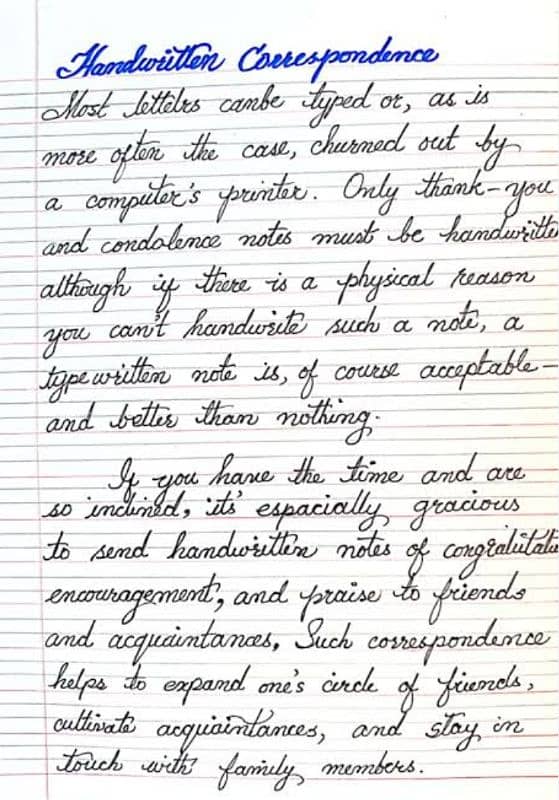 Handwritten Correspondence
Most lettelrs canbe typed or, as is
more often the case, churned out by
a computer's printer. Only thank-you
and condolence notes must be handwritte
although if there is a physical reason
you can't handwrite such a note, a
typewritten note is, of course acceptable-
and better than nothing.
If you have the time and are
so inclined, its' espacially gracious
to send handwritten notes of congralutati
encouragement, and praise to friends
and acquaintances. Such correspondence
helps to expand one's circle of friends,
cultivate acquiaintances, and stay in
touch with family members.